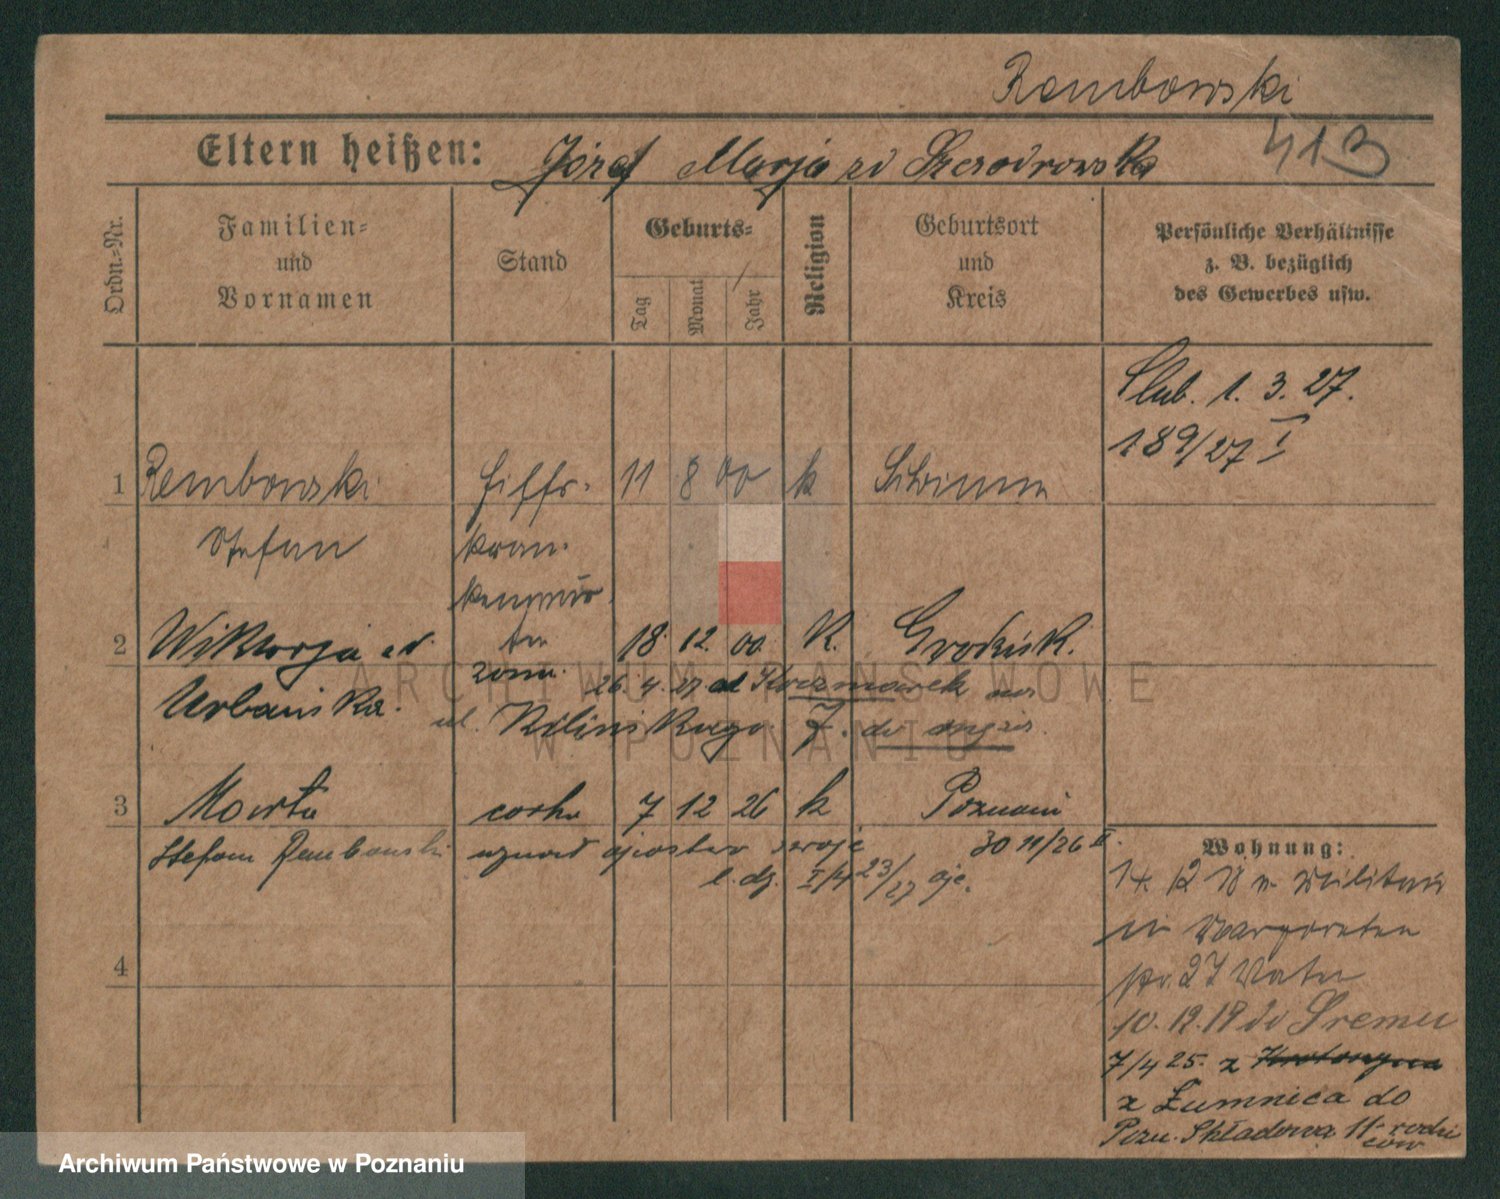 Rembowski
413
Eltern heißen: Józef Marja zd Szczodrowska
Ordn.=Nr.
Familien=
und
Vornamen
Stand
Geburts=
Tag
Monat
Jahr
Religion
Geburtsort
und
Kreis
Persönliche Verhältnisse
z. B. bezüglich
des Gewerbes usw.
Slub. 1. 3. 27.
189/27 I
1 Rembowski 11 8 00 k Schrimm
Stefan
2 Wiktorja zd. 18 12. 00. K. Grodzisk.
żona. 26. 4. 27 od Kaczmarek
Urbańska. ul. Kilińskiego 7. do męża.
3 Marta córka 7 12 26 k Poznań
Stefan Rembowski uznał ojcostwo swoje 30 11/26 II
l. dz. I/4 23/27
Wohnung:
14 12 18 v. Militär
in Margareten
str. 27 Vater
10. 12. 19 do Śremu
7/4 25. z Krotoszyna
z Łumnica do
Pozn. Składowa 11 rodzi
ców
4
ARCHIWUM PAŃSTWOWE
W POZNANIU
Archiwum Państwowe w Poznaniu